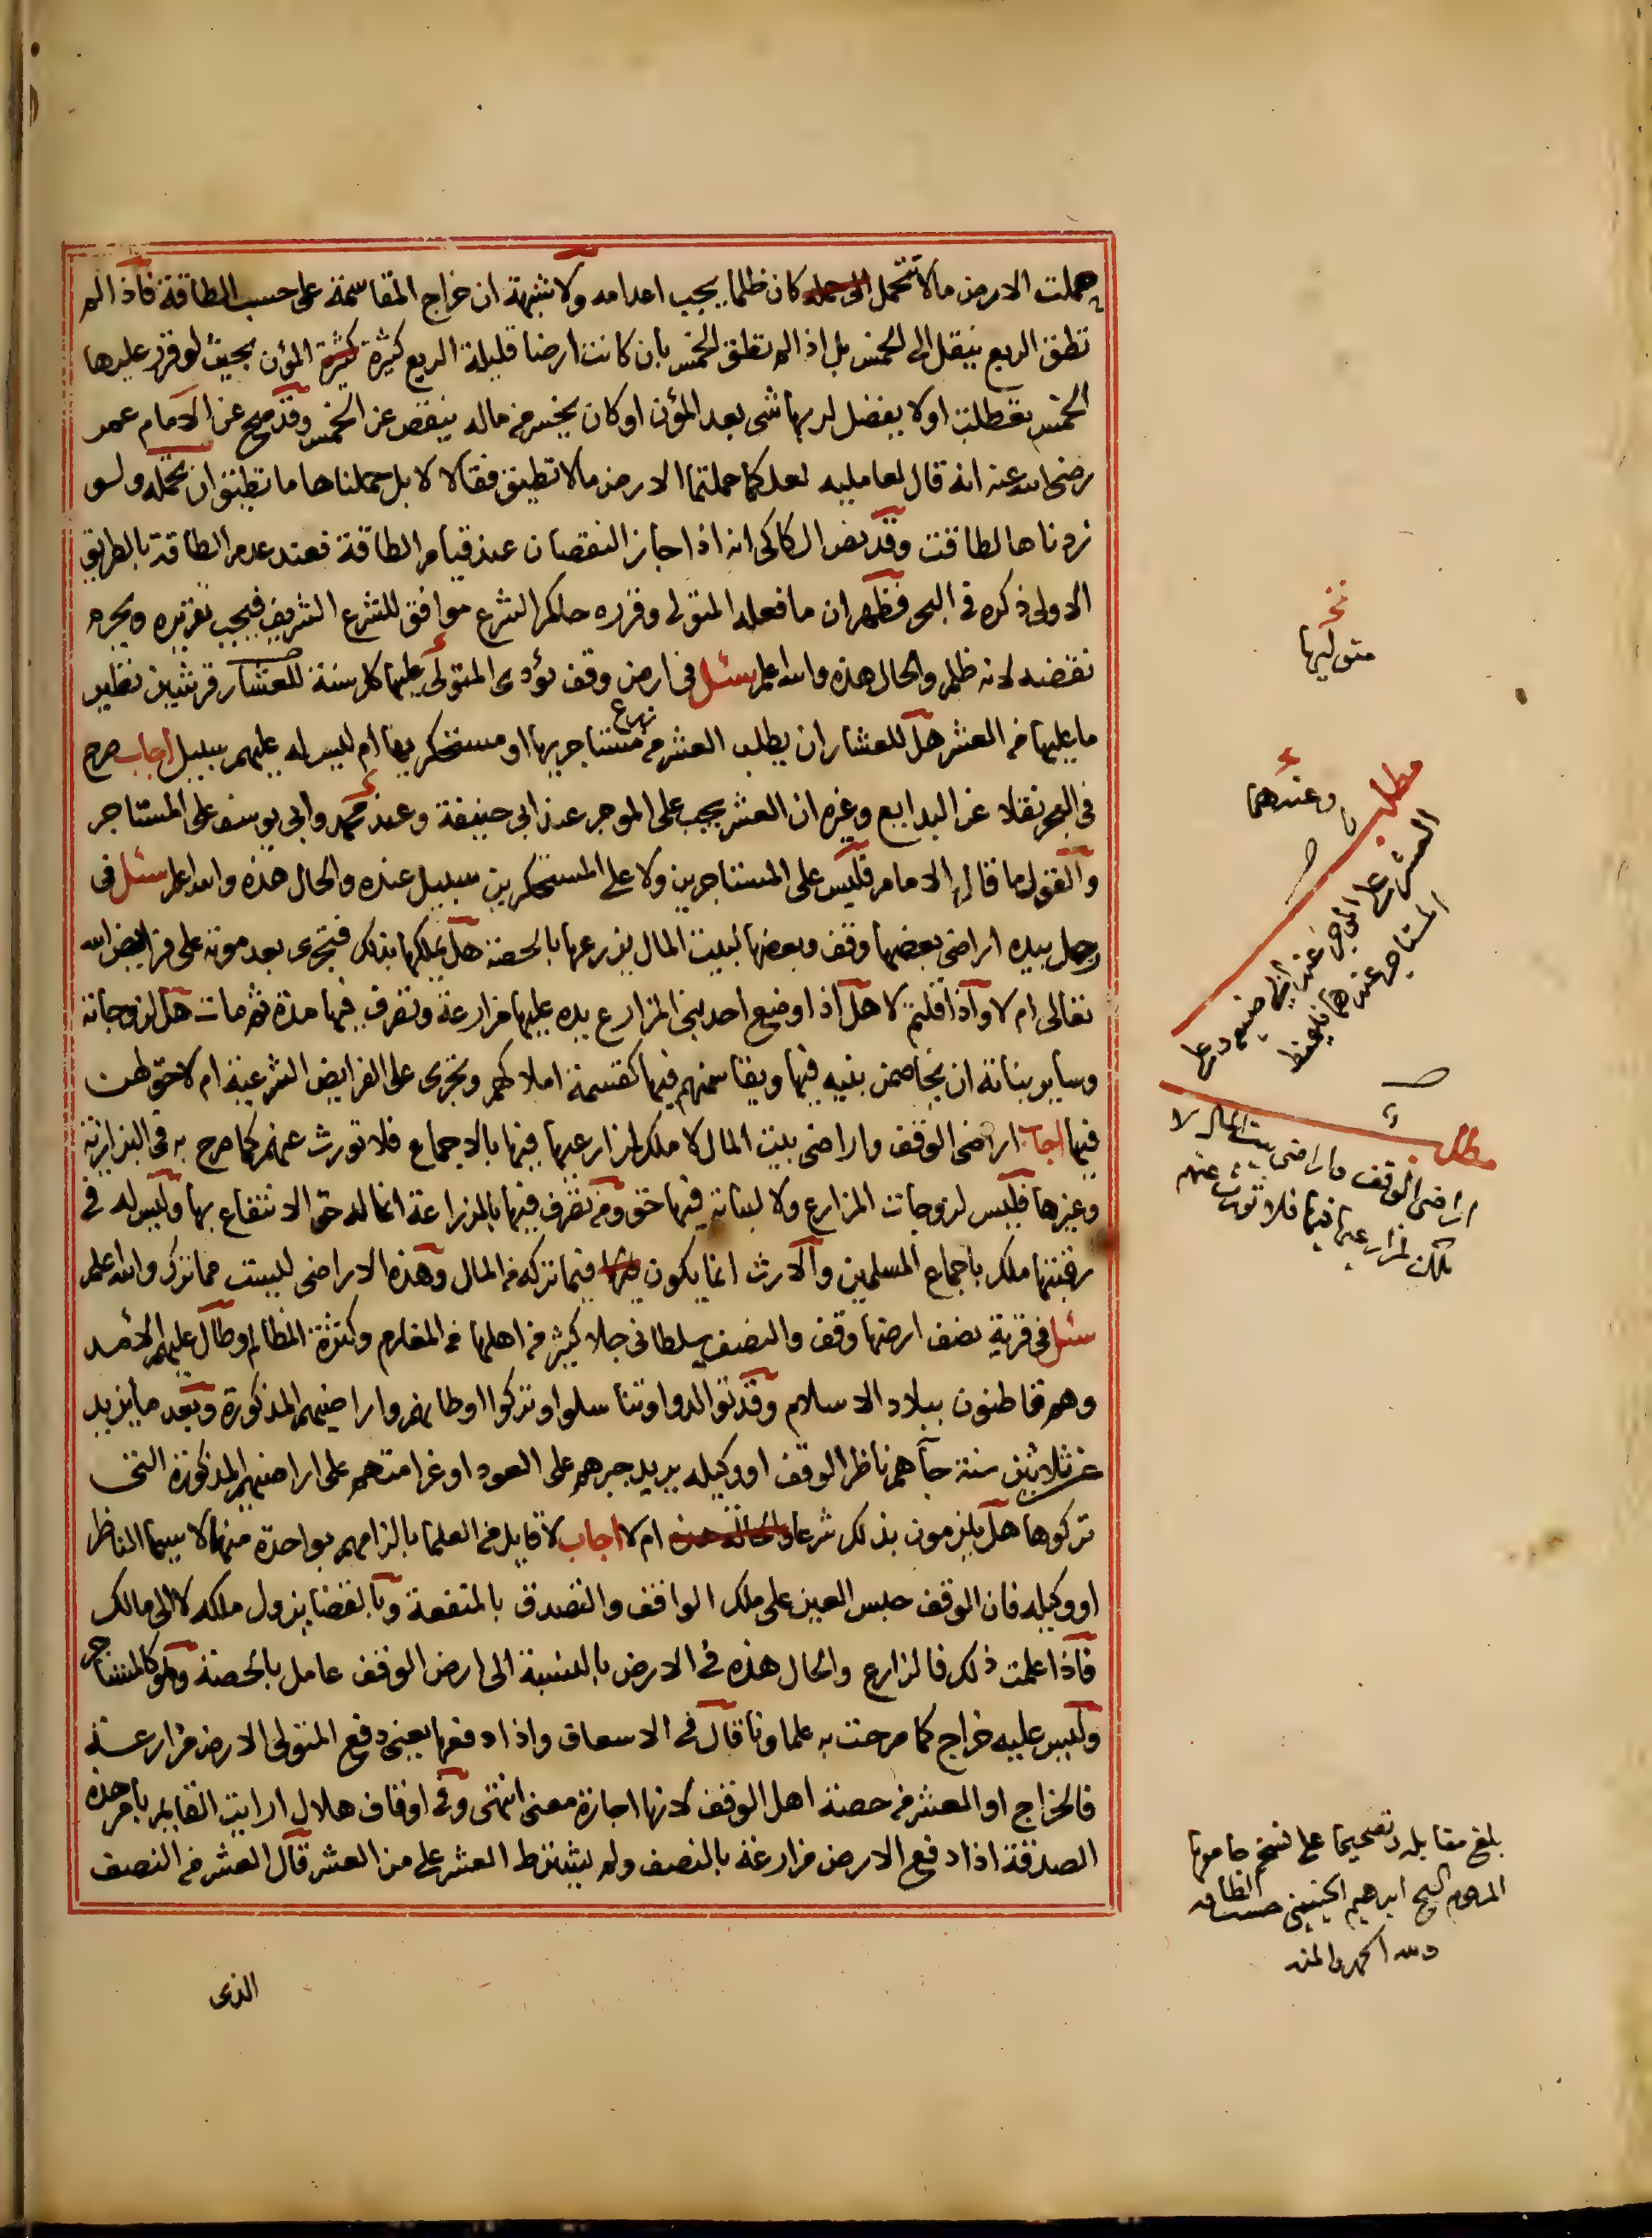 حملت الارض مالا تتحمل الى حمله كان ظلما يجب اعدامه ولا شبهة ان خراج المقاسمة على حسب الطاقة فاذا لم
تطق الربع ينقل الى الخمس بل اذا لم تطق الخمس بان كانت ارضا قليلة الريع كثيرة كثيرة المؤن بحيث لو قرر عليها
الخمس تعطلت او لا يفضل لربها شى بعد المؤن او كان يخسر من ماله ينقص عن الخمس وقد صح عن الامام عمر
رضى الله عنه انه قال لعامليه لعلكما حملتما الارض مالا تطيق فقالا لا بل حملناها ما تطيق ان تحمله ولو
زدناها لطاقت وقد نص الكاكى انه اذا جاز النقصان عند قيام الطاقة فعند عدم الطاقة بالطريق
الاولى ذكره فى البحر فظهر ان ما فعله المتولى وقرره حاكم الشرع موافق للشرع الشريف فيجب تقريره ويحرم
نقضه لانه ظلم والحال هذه والله اعلم سئل فى ارض وقف يؤدى المتولى عليها كل سنة للعشار قرشين نظير
ما عليها من العشر هل للعشار ان يطلب العشر من زراع مستاجريها او مستحكريها ام ليس له عليهم سبيل اجاب صرح
فى البحر نقلا عن البدايع وغيره ان العشر يجب على الموجر عند ابى حنيفة وعند محمد وابى يوسف على المستاجر
والقول ما قاله الامام فليس على المستاجرين ولا على المستحكرين سبيل عنده والحال هذه والله اعلم سئل فى
رجل بيده اراضى بعضها وقف وبعضها لبيت المال يزرعها بالحصة هل يملكها بذلك فتجرى بعد موته على فرايض الله
تعالى ام لا واذا قلتم لا هل اذا وضع احد بنى المزارع يده عليها مزارعة وتصرف فيها مدة ثم مات هل لزوجاته
وساير بناته ان يخاصمن بنيه فيها ويقاسمنهم فيها كقسمة املاكهم وتجرى على الفرايض الشرعية ام لا حق لهن
فيها اجاب اراضى الوقف واراضى بيت المال لا ملك لمزارعيها فيها بالاجماع فلا تورث عنهم كما صرح به فى البزازية
وغيرها فليس لزوجات المزارع ولا لبناته فيها حق ومن تصرف فيها بالمزراعة انما له حق الانتفاع بها وليس له فى
رقبتها ملك باجماع المسلمين والارث انما يكون فيما تركه من المال وهذه الاراضى ليست مما ترك والله اعلم
سئل فى قرية نصف ارضها وقف والنصف سلطانى جلا كثير من اهلها من المغارم وكثرة المظالم وطال عليهم الامد
وهم قاطنون ببلاد الاسلام وقد توالدوا وتناسلوا وتركوا اوطانهم واراضيهم المذكورة وبعد ما يزيد
عن ثلاثين سنة جآهم ناظر الوقف او وكيله يريد جبرهم على العود او غرامتهم على اراضيهم المذكورة التى
تركوها هل يلزمون بذلك شرعا والحالة هذه ام لا اجاب لا قايل من العلما بالزامهم بواحدة منها لا سيما الناظر
او وكيله فان الوقف حبس العين على ملك الواقف والتصدق بالمنفعة وبالقضا يزول ملكه لا الى مالك
فاذا علمت ذلك فالزارع والحال هذه فى الارض بالنسبة الى ارض الوقف عامل بالحصة وهو كالمستاجر
وليس عليه خراج كما صرحت به علماونا قال فى الاسعاف واذا دفعها يعنى دفع المتولى الارض مزارعة
فالخراج او العشر من حصة اهل الوقف لانها اجارة معنى انتهى وفى اوقاف هلال ارايت القايم بامر هذه
الصدقة اذا دفع الارض مزارعة بالنصف ولم يشترط العشر على من العشر قال العشر من النصف
الذى
نخ
متوليها
وعندهما
مطلب
العشر على الموجر عند ابى حنيفة وعلى
المستاجر عندهما
مطلب
اراضى الوقف واراضى بيت المال لا
ملك لمزارعيها فيها فلا تورث عنهم
بلغ مقابلة وتصحيحا على نسخة جامعها
المرحوم الشيخ ابرهيم الجينينى حسب الطاقه
ولله الحمد والمنه